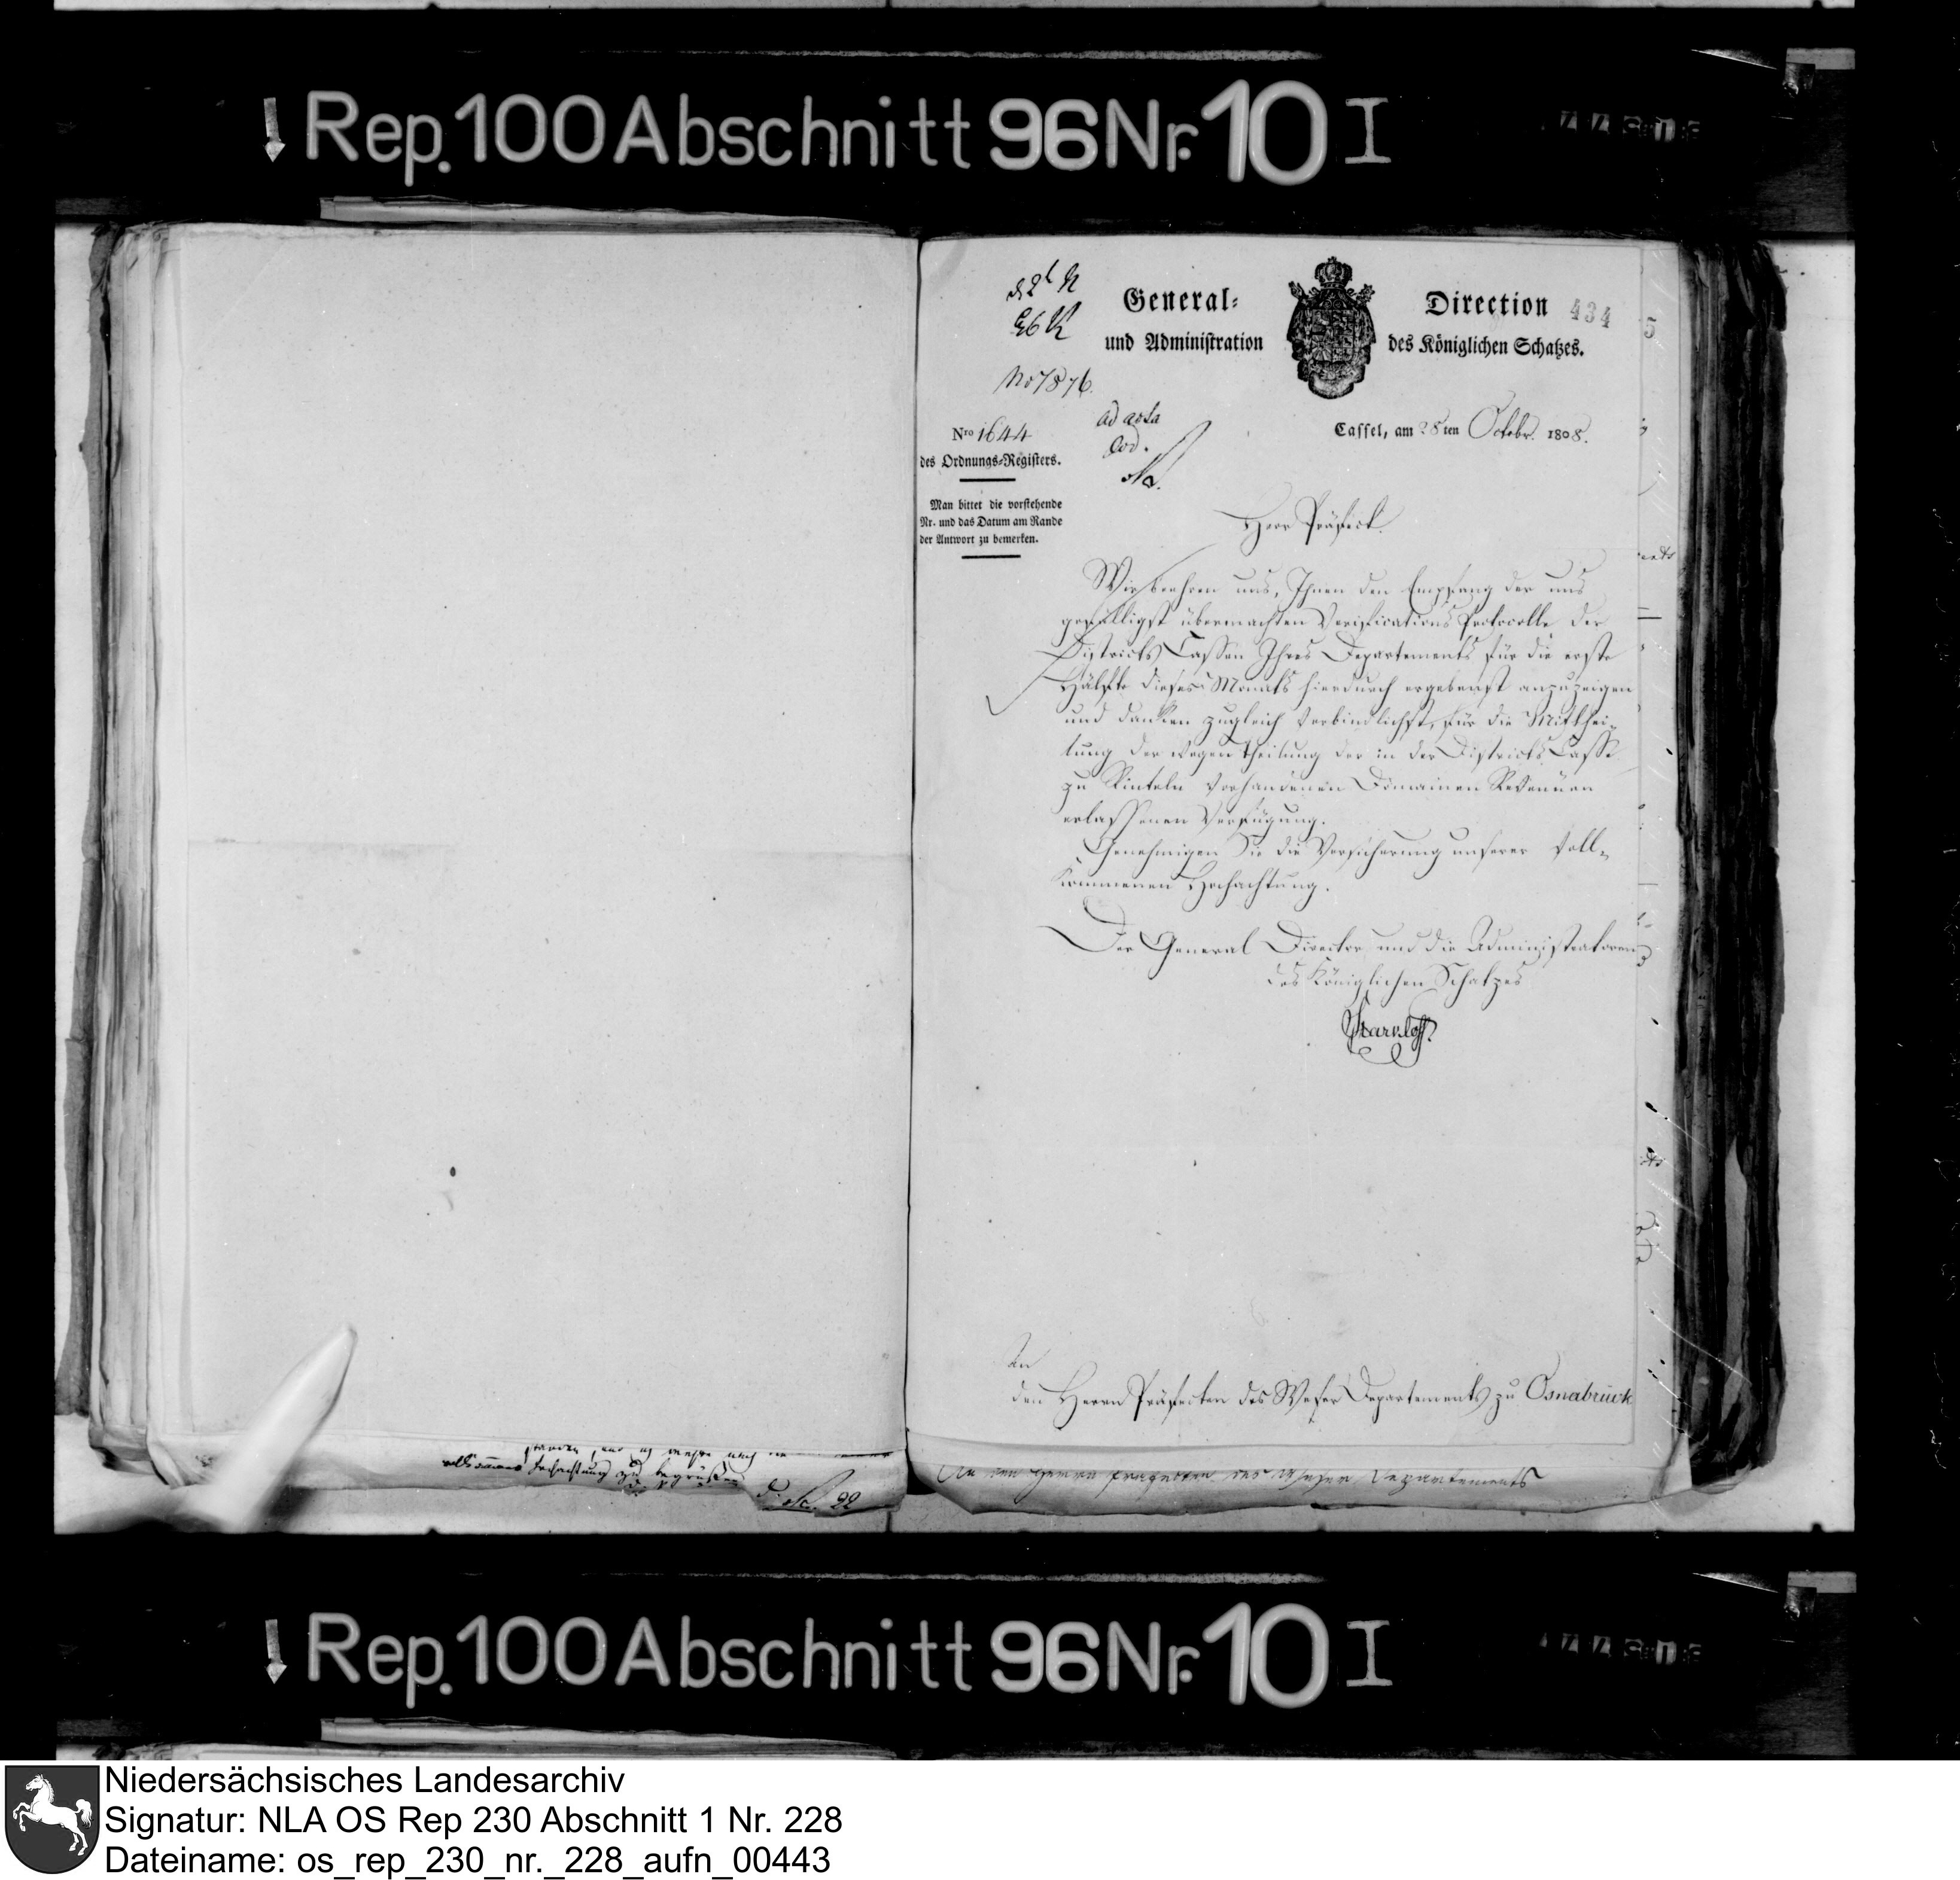 Rep. 100 Abschnitt 96 Nr. 10 I
General-
Direction
434
und Administration
des Königlichen Schatzes.
No 7876.
ad acta
Nro 1644
Cassel, am 28ten Octobr. 1808.
des Ordnungs-Registers.
Man bittet die vorstehende
Nr. und das Datum am Rande
der Antwort zu bemerken.
Herr Präfect.
Wir beehren uns, Ihnen den Empfang der uns
gefälligst übermachten Verifications Protocolle der
Districts Cassen Ihres Departements für die erste
Hälfte dieses Monats hierdurch ergebenst anzuzeigen
und danken zugleich verbindlichst, für die Mitthei-
lung der wegen Theilung der in der Districts Casse
zu Rinteln vorhandenen Domainen Revenüen
erlassenen Verfügung.
Genehmigen Sie die Versicherung unserer voll-
kommenen Hochachtung.
Der General Director und die Administratoren
des Königlichen Schatzes
An
den Herrn Präfecten des Weser Departements zu Osnabrück
Hochachtung zu begrüßen
An den Herrn Praefecten des Weser Departements
Rep. 100 Abschnitt 96 Nr. 10 I
Niedersächsisches Landesarchiv
Signatur: NLA OS Rep 230 Abschnitt 1 Nr. 228
Dateiname: os_rep_230_nr._228_aufn_00443